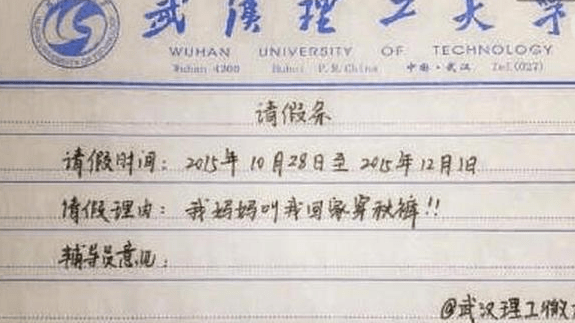 武漢理工大学
WUHAN UNIVERSITY OF TECHNOLOGY
Wuhan 4300 Hubei P.R.China 中国·武汉 Tel(027)
请假条
请假时间：2015年10月28日至2015年12月1日
请假理由：我妈妈叫我回家穿秋裤!!
辅导员意见：
@武汉理工微